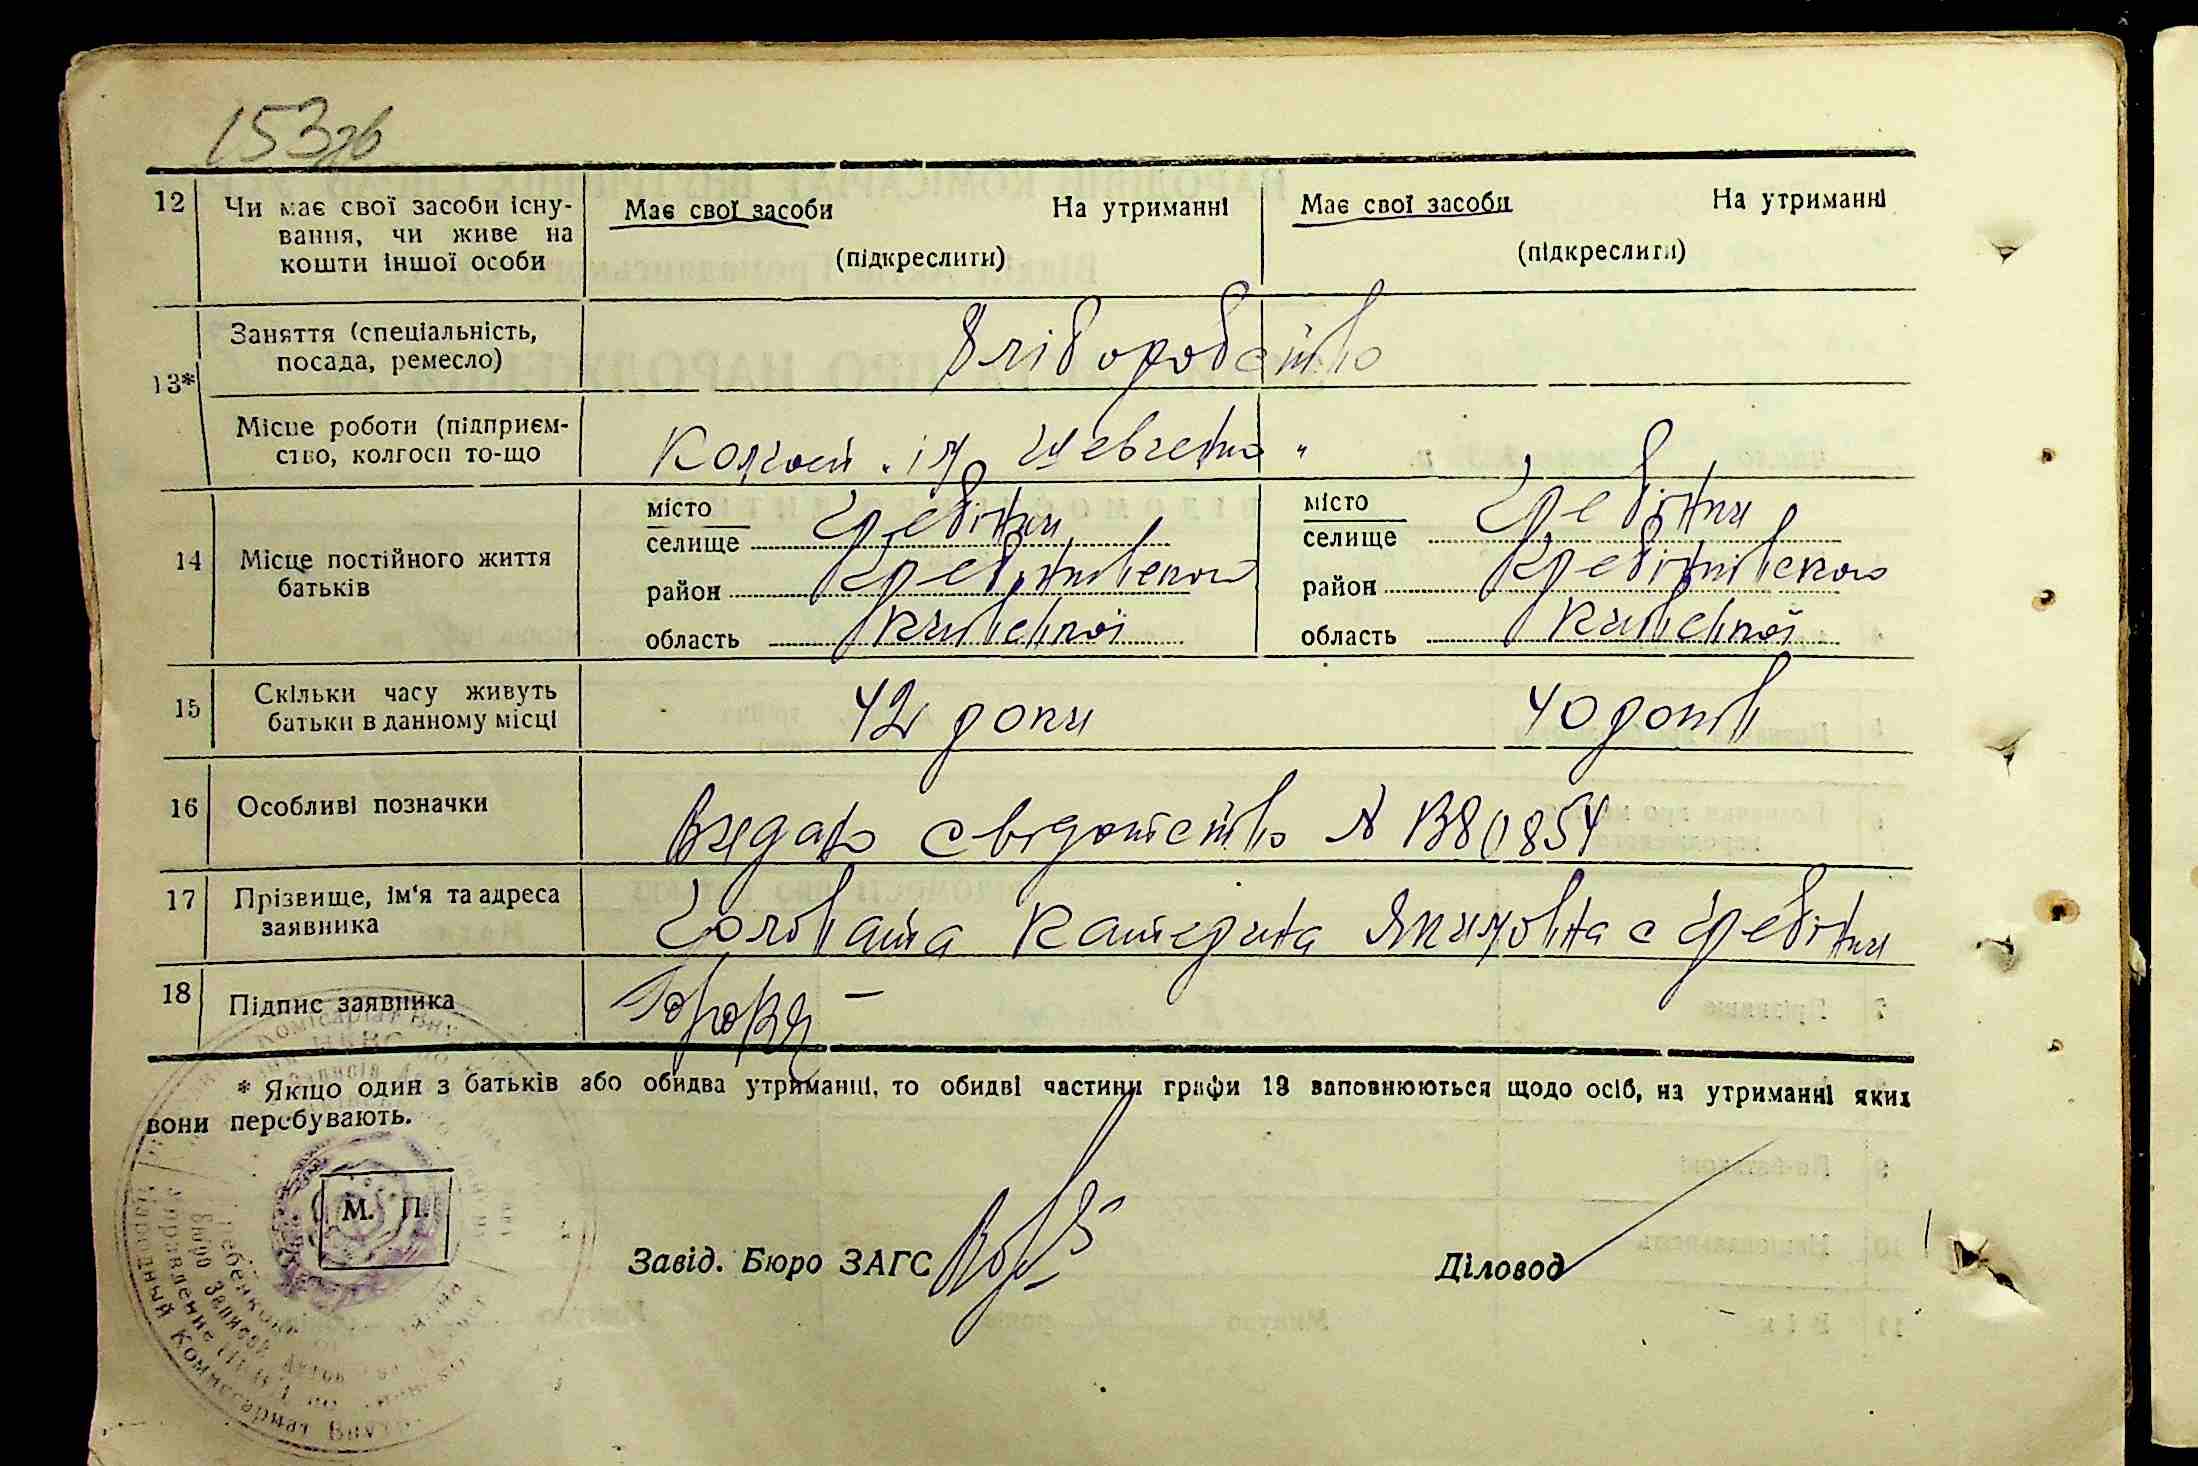 153зв
12 Чи має свої засоби існу- Має свої засоби На утриманні Має свої засоби На утриманні
вання, чи живе на (підкреслити) (підкреслити)
кошти іншої особи
13* Заняття (спеціальність, Хліборобство
посада, ремесло)
Місце роботи (підприєм- Колгосп ім Шевченка "
ство, колгосп то-що
14 Місце постійного життя батьків
місто Гребінки місто Гребінки
селище селище
район Гребінківського район Гребінківського
область Київської область Київської
15 Скільки часу живуть 42 роки 40 років
батьки в данному місці
16 Особливі позначки Видано свідотство № 1380854
17 Прізвище, ім'я та адреса Головата Катерина Якимовна с Гребінки
заявника
18 Підпис заявника
* Якщо один з батьків або обидва утриманці, то обидві частини графи 13 заповнюються щодо осіб, на утриманні яких
вони перебувають.
М. П.
Завід. Бюро ЗАГС Діловод